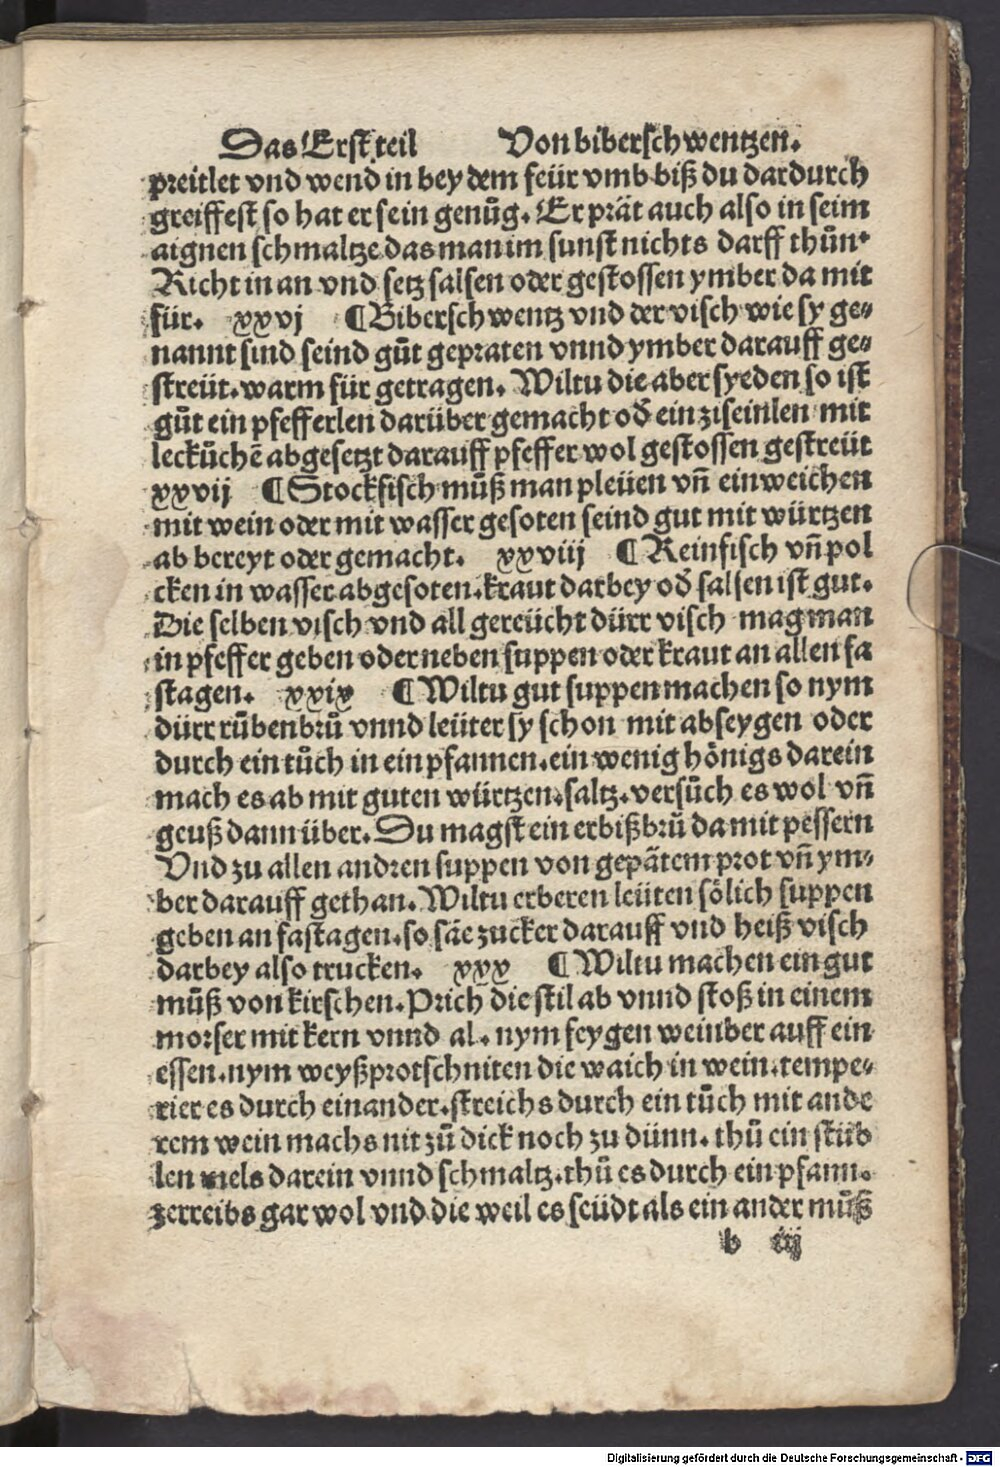 Das Erst teil Von biberschwentzen.
preitlet vnd wend in bey dem feür vmb biß du dardurch
greiffest so hat er sein genůg. Er prät auch also in seim
aignen schmaltze das man im sunst nichts darff thůn.
Richt in an vnd setz salsen oder gestossen ymber da mit
für. xxvj ¶ Biberschwentz vnd der visch wie sy ge⸗
nannt sind seind gůt gepraten vnnd ymber darauff ge⸗
streüt. warm für getragen. Wiltu die aber syeden so ist
gůt ein pfefferlen darüber gemacht oď ein ziseinlen mit
leckůchē abgesetzt darauff pfeffer wol gestossen gestreüt
xxvij ¶ Stockfisch můß man pleüen vñ einweichen
mit wein oder mit wasser gesoten seind gut mit würtzen
ab bereyt oder gemacht. xxviij ¶ Reinfisch vñ pol
cken in wasser abgesoten. kraut darbey oď salsen ist gut.
Die selben visch vnd all gereücht dürr visch mag man
in pfeffer geben oder neben suppen oder kraut an allen fa
stagen. xxix ¶ Wiltu gut suppen machen so nym
dürr růbenbrů vnnd leüter sy schon mit abseygen oder
durch ein tůch in ein pfannen. ein wenig hönigs darein
mach es ab mit guten würtzen. saltz. versůch es wol vñ
geuß dann über. Du magst ein erbißbrů da mit pessern
Vnd zu allen andren suppen von gepätem prot vñ ym⸗
ber darauff gethan. Wiltu erberen leüten sölich suppen
geben an fastagen. so säe zucker darauff vnd heiß visch
darbey also trucken. xxx ¶ Wiltu machen ein gut
můß von kirschen. Prich die stil ab vnnd stoß in einem
morser mit kern vnnd al. nym feygen weinber auff ein
essen. nym weyßprotschniten die waich in wein. tempe⸗
rier es durch einander. streichs durch ein tůch mit ande
rem wein machs nit zů dick noch zu dünn. thů ein stüb
len mels darein vnnd schmaltz. thů es durch ein pfann.
zerreibs gar wol vnd die weil es seüdt als ein ander můß
b iij
Digitalisierung gefördert durch die Deutsche Forschungsgemeinschaft - DFG